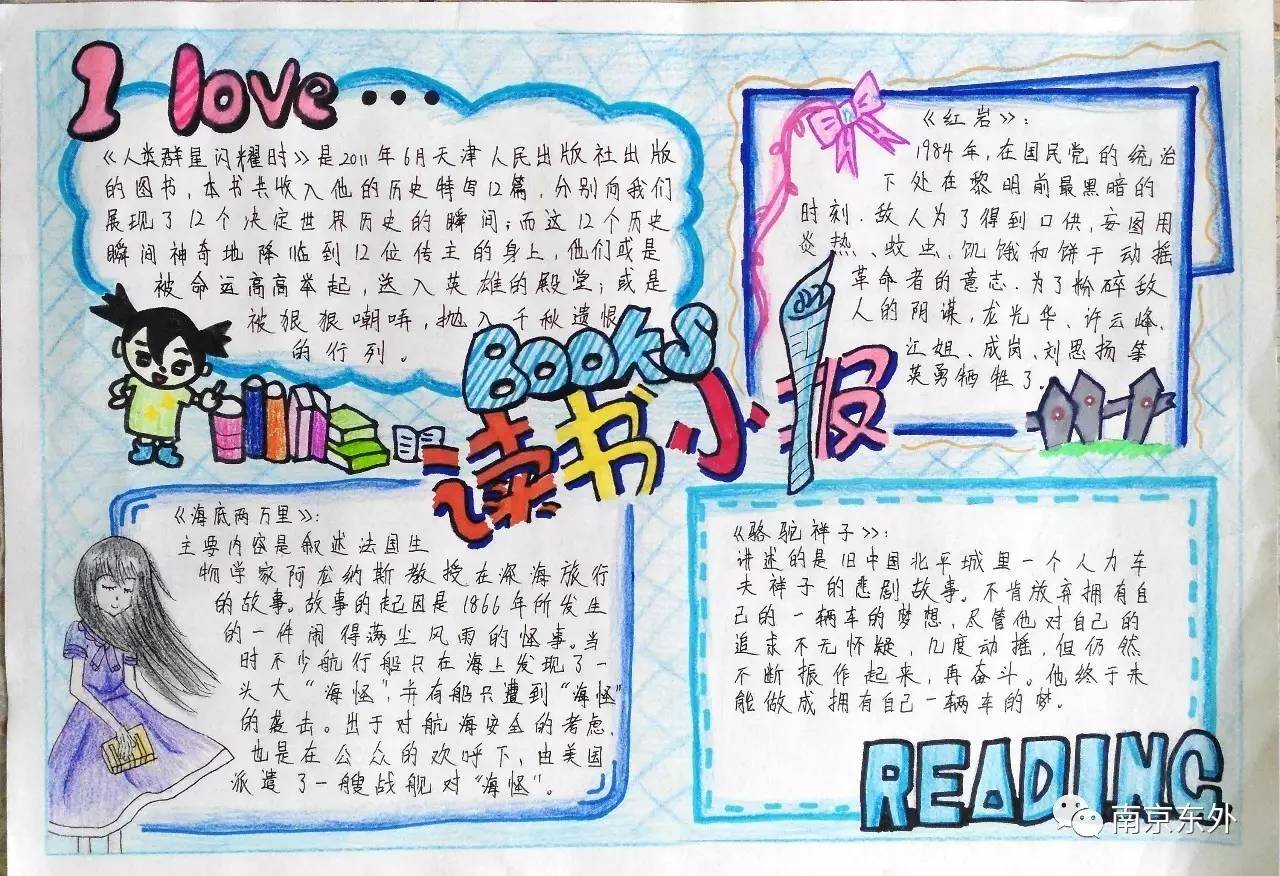 I love...
《人类群星闪耀时》是2011年6月天津人民出版社出版
的图书,本书共收入他的历史特写12篇,分别向我们
展现了12个决定世界历史的瞬间;而这12个历史
瞬间神奇地降临到12位传主的身上,他们或是
被命运高高举起,送入英雄的殿堂;或是
被狠狠嘲哢,抛入千秋遗恨
的行列。
BOOKS
读书小报
《红岩》:
1984年,在国民党的统治
下处在黎明前最黑暗的
时刻.敌人为了得到口供,妄图用
炎热、蚊虫、饥饿和饼干动摇
革命者的意志.为了粉碎敌
人的阴谋,龙光华、许云峰、
江姐、成岗、刘思扬等
英勇牺牲了。
《海底两万里》:
主要内容是叙述法国生
物学家阿龙纳斯教授在深海旅行
的故事。故事的起因是1866年所发生
的一件闹得满尘风雨的怪事。当
时不少航行船只在海上发现了一
头大“海怪”,并有船只遭到“海怪”
的袭击。出于对航海安全的考虑,
也是在公众的欢呼下,由美国
派遣了一艘战舰对“海怪”。
《骆驼祥子》:
讲述的是旧中国北平城里一个人力车
夫祥子的悲剧故事。不肯放弃拥有自
己的一辆车的梦想,尽管他对自己的
追求不无怀疑,几度动摇,但仍然
不断振作起来,再奋斗。他终于未
能做成拥有自己一辆车的梦。
READING
南京东外